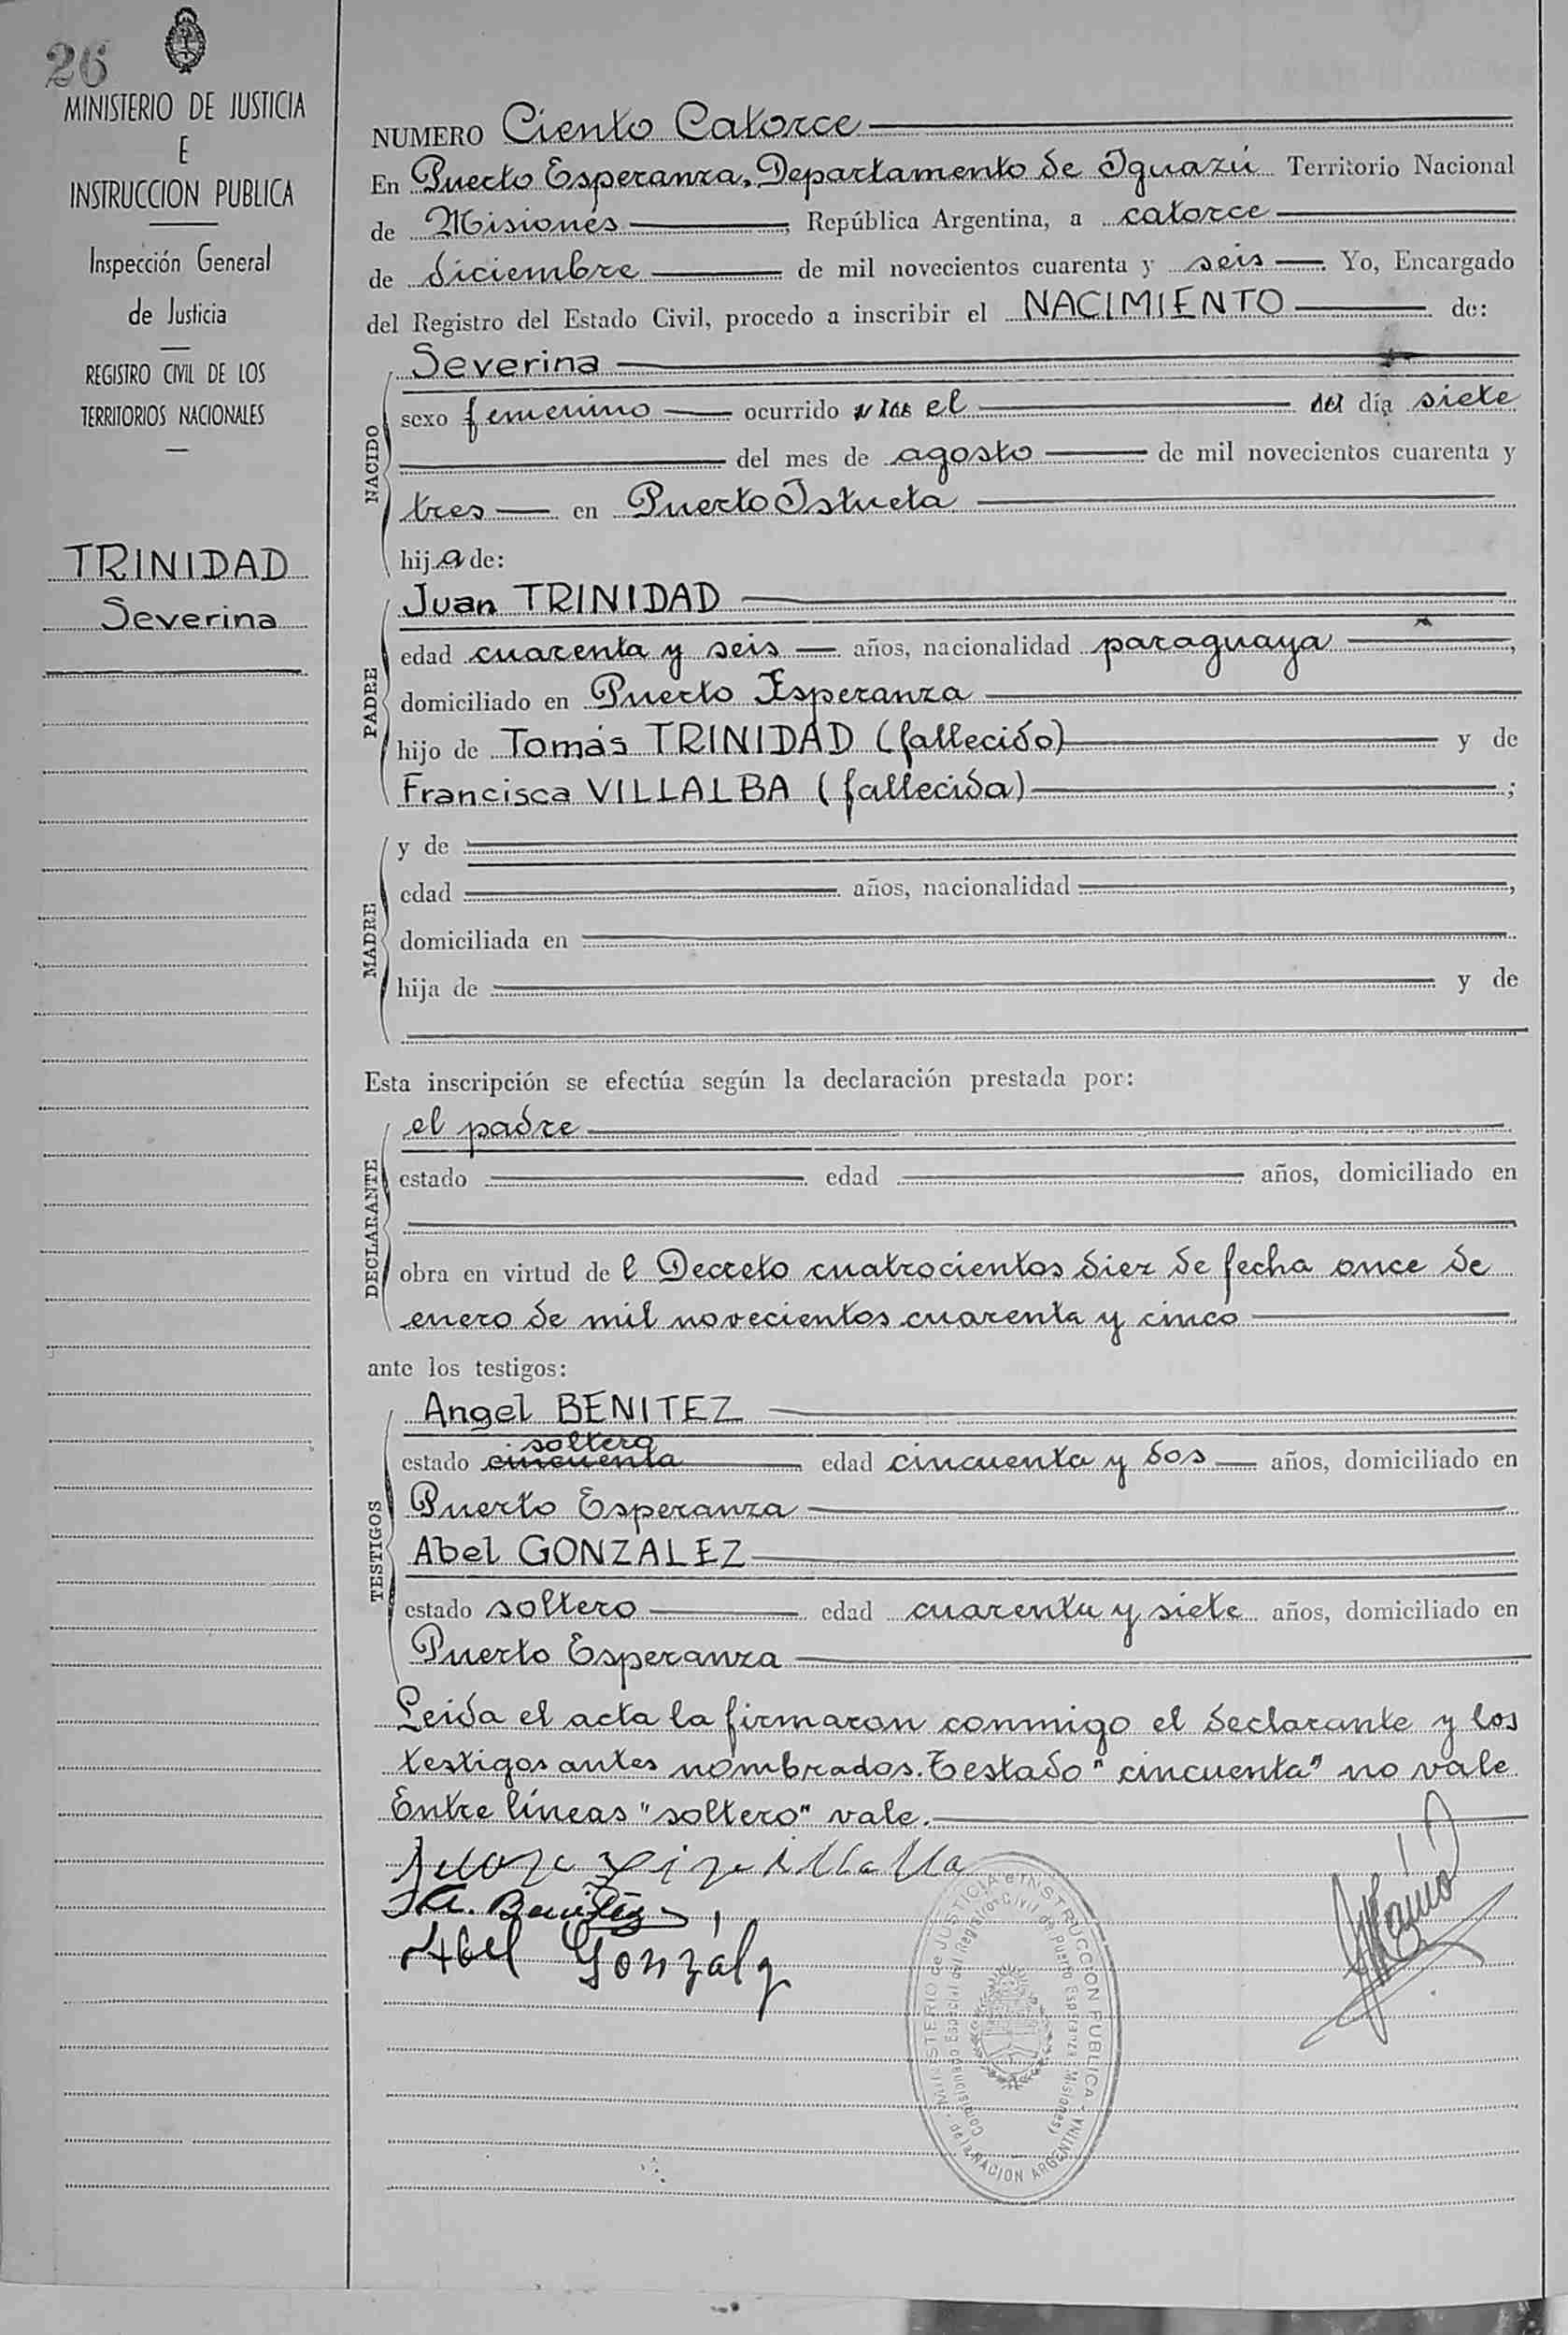 26
MINISTERIO DE JUSTICIA
E
INSTRUCCION PUBLICA
Inspección General
de Justicia
REGISTRO CIVIL DE LOS
TERRITORIOS NACIONALES
TRINIDAD
Severina
NUMERO Ciento Catorce
En Puerto Esperanza, Departamento de Iguazú Territorio Nacional
de Misiones, República Argentina, a catorce
de diciembre de mil novecientos cuarenta y seis. Yo, Encargado
del Registro del Estado Civil, procedo a inscribir el NACIMIENTO de:
NACIDO
Severina
sexo femenino ocurrido el día siete
del mes de agosto de mil novecientos cuarenta y
tres en Puerto Istueta
hija de:
PADRE
Juan TRINIDAD
edad cuarenta y seis años, nacionalidad paraguaya,
domiciliado en Puerto Esperanza
hijo de Tomás TRINIDAD (fallecido) y de
Francisca VILLALBA (fallecida);
MADRE
y de
edad años, nacionalidad,
domiciliada en
hija de y de
Esta inscripción se efectúa según la declaración prestada por:
DECLARANTE
el padre
estado edad años, domiciliado en
obra en virtud del Decreto cuatrocientos diez de fecha once de
enero de mil novecientos cuarenta y cinco
ante los testigos:
TESTIGOS
Angel BENITEZ
soltero
estado cincuenta edad cincuenta y dos años, domiciliado en
Puerto Esperanza
Abel GONZALEZ
estado soltero edad cuarenta y siete años, domiciliado en
Puerto Esperanza
Leida el acta la firmaron conmigo el declarante y los
testigos antes nombrados. Testado "cincuenta" no vale
Entre líneas "soltero" vale.
A. Benitez
Abel Gonzalez
MINISTERIO de JUSTICIA e INSTRUCCION PUBLICA de la NACION ARGENTINA
Comisionado Especial del Registro Civil de Puerto Esperanza (Misiones)